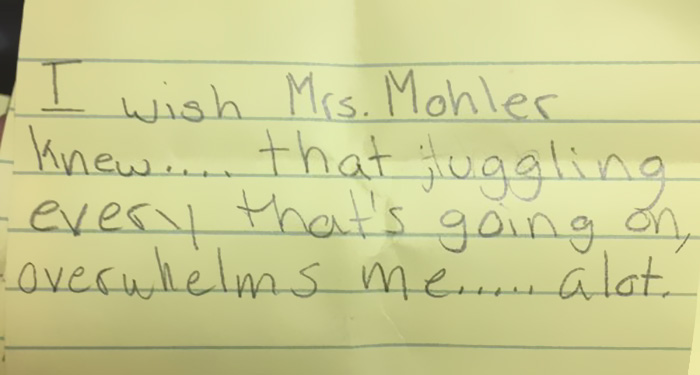 I wish Mrs. Mohler
knew.... that juggling
every that's going on,
overwhelms me..... alot.